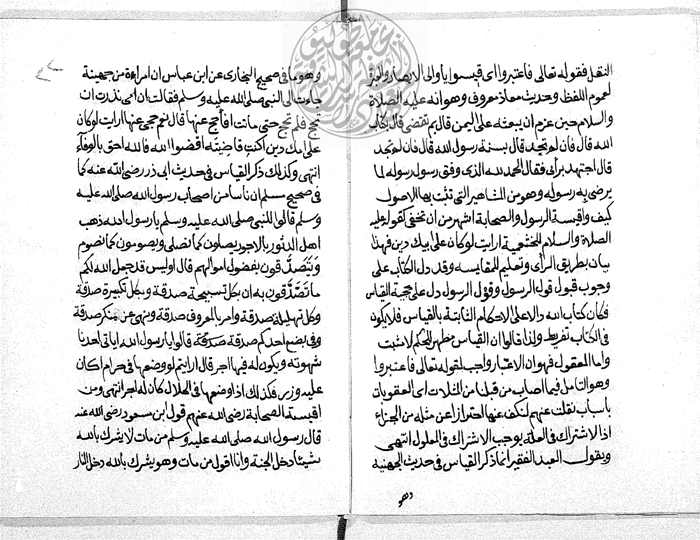 النقل فقوله تعالى فاعتبروا اى قيسوا يا اولى الابصار والعبرة
لعموم اللفظ وحديث معاذ معروف وهو انه عليه الصلاة
والسلام حين عزم ان يبعثه على اليمن قال بم تقضى قال بكتاب
الله قال فان لم تجد قال بسنة رسول الله قال فان لم تجد
قال اجتهد برأيى فقال الحمد لله الذى وفق رسول رسوله لما
يرضى به رسوله وهو من المشاهير التى تثبت بها الاصول
كيف واقيسة الرسول والصحابة اشهر من ان تخفى كقوله عليه
الصلاة والسلام للخثعمية ارايت لو كان على ابيك دين فهذا
بيان بطريق الرأى وتعليم المقايسه وقد دل الكتاب على
وجوب قبول قول الرسول وقول الرسول دل على حجية القياس
فكان كتاب الله دالا على الاحكام الثابتة بالقياس فلا يكون
فى الكتاب تفريط ولذا قالوا ان القياس مظهر للحكم لا مثبت
واما المعقول فهو ان الاعتبار واجب لقوله تعالى فاعتبروا
وهو التامل فيما اصاب من قبلنا من المثلات اى العقوبات
باسباب نقلت عنهم لنكف عنها احترازا عن مثله من الجزاء
اذ الاشتراك فى العلة يوجب الاشتراك فى المعلول انتهى
ويقول العبد الفقير انما ذكر القياس فى حديث الجهنية
وهو
وهو ما فى صحيح البخارى عن ابن عباس ان امراءة من جهينة
جاءت الى النبى صلى الله عليه وسلم فقالت ان امى نذرت ان
تحج فلم تحج حتى ماتت أفأحج عنها قال نعم حجى عنها ارايت لو كان
على امك دين اكنت قاضيته اقضوا الله فالله احق بالوفآء
انتهى وكذلك ذكر القياس فى حديث ابى ذر رضى الله عنه كما
فى صحيح مسلم ان ناسا من اصحاب رسول الله صلى الله عليه
وسلم قالوا للنبى صلى الله عليه وسلم يا رسول الله ذهب
اهل الدثور بالاجور يصلون كما نصلى ويصومون كما نصوم
ويتصدقون بفضول اموالهم قال اوليس قد جعل الله لكم
ما تصدقون به ان بكل تسبيحة صدقة وبكل تكبيرة صدقة
وكل تهليلة صدقة وامر بالمعروف صدقة ونهى عن منكر صدقة
وفى بضع احدكم صدقة قالوا يا رسول الله اياتى احدنا
شهوته ويكون له فيها اجر قال ارايتم لو وضعها فى حرام اكان
عليه وزر فكذلك اذا وضعها فى الحلال كان له اجر انتهى ومن
اقيسة الصحابة رضى الله عنهم قول ابن مسعود رضى الله عنه
قال رسول الله صلى الله عليه وسلم من مات لا يشرك بالله
شيئا دخل الجنة وانا اقول من مات وهو يشرك بالله دخل النار